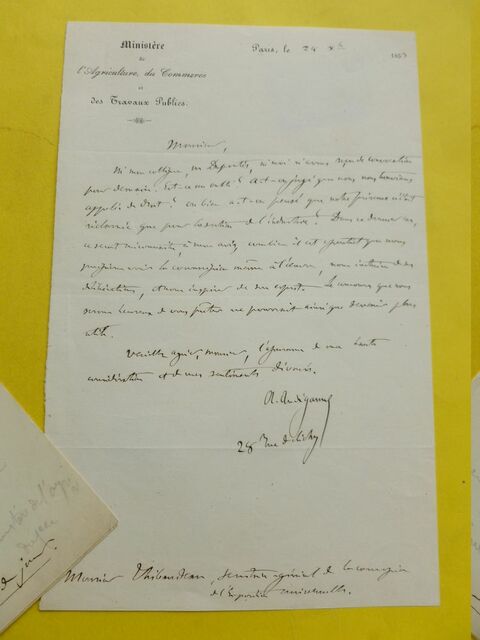 Ministère
de
l'Agriculture, du Commerce
et
des Travaux Publics.
Paris, le 24 Xbre 1853
Monsieur,
Ni mon collègue, ni moi n'avons reçu de convocation
pour demain. Est-ce un oubli? A-t-on jugé que nous nous trouvions
appelés de droit? ou bien a-t-on pensé que notre présence n'était
réclamée que pour la section de l'industrie? Dans ce dernier cas,
ce serait méconnaître, à mon avis, combien il est important que nous
puissions voir la commission même à l'œuvre, nous instruire de ses
délibérations, et nous inspirer de son esprit. Le concours que nous
serons heureux de vous prêter ne pourrait ainsi que devenir plus
utile.
Veuillez agréer, monsieur, l'assurance de ma haute
considération et de mes sentiments dévoués.
A. Audiganne
28 rue de Clichy
Monsieur Thibaudeau, secrétaire général de la commission
de l'Exposition universelle.